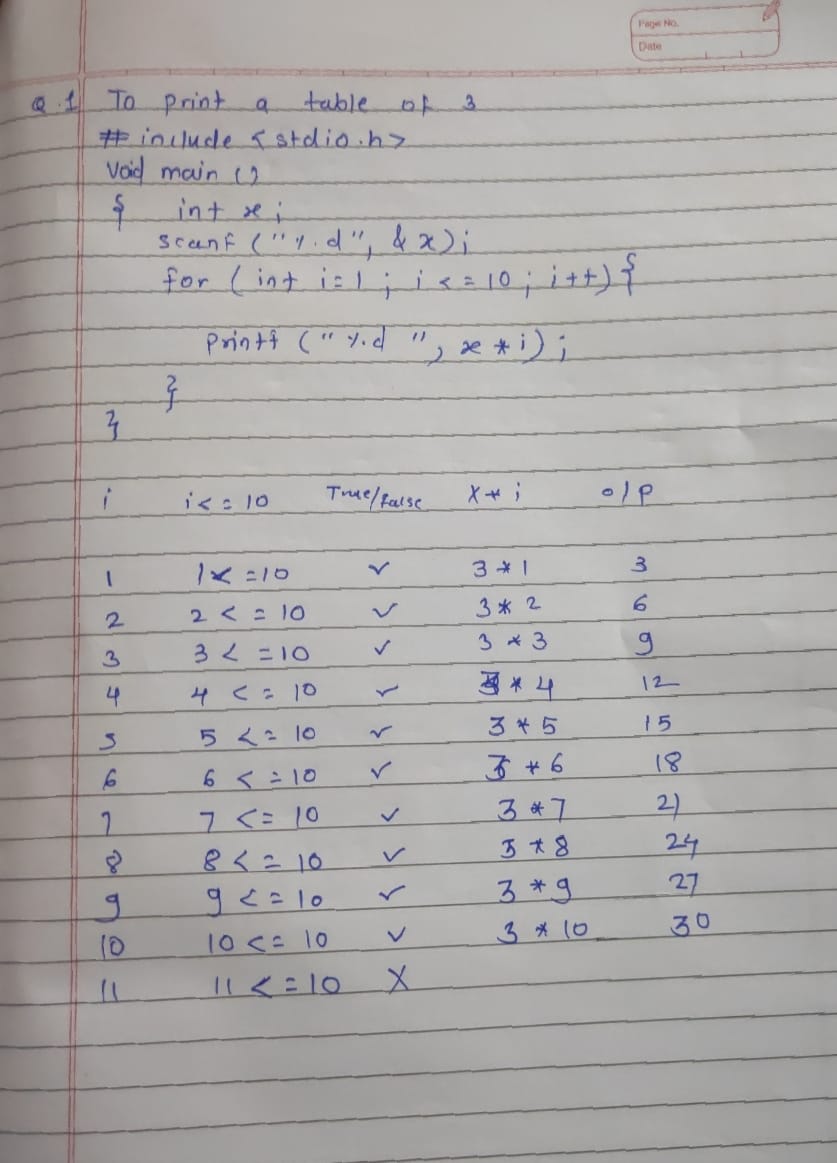 Page No.
Date
Q.1 To print a table of 3
# include <stdio.h>
Void main ()
{ int x;
scanf ("%d", & x);
for (int i=1; i<=10; i++) {
printf ("%d ", x * i);
}
}
i i<=10 True/false X * i o/p
1 1<=10 ✓ 3 * 1 3
2 2 <= 10 ✓ 3 * 2 6
3 3 <=10 ✓ 3 * 3 9
4 4 <= 10 ✓ 3 * 4 12
5 5 <= 10 ✓ 3 * 5 15
6 6 <= 10 ✓ 3 * 6 18
7 7 <= 10 ✓ 3 * 7 21
8 8 <= 10 ✓ 3 * 8 24
9 9 <= 10 ✓ 3 * 9 27
10 10 <= 10 ✓ 3 * 10 30
11 11 <= 10 X